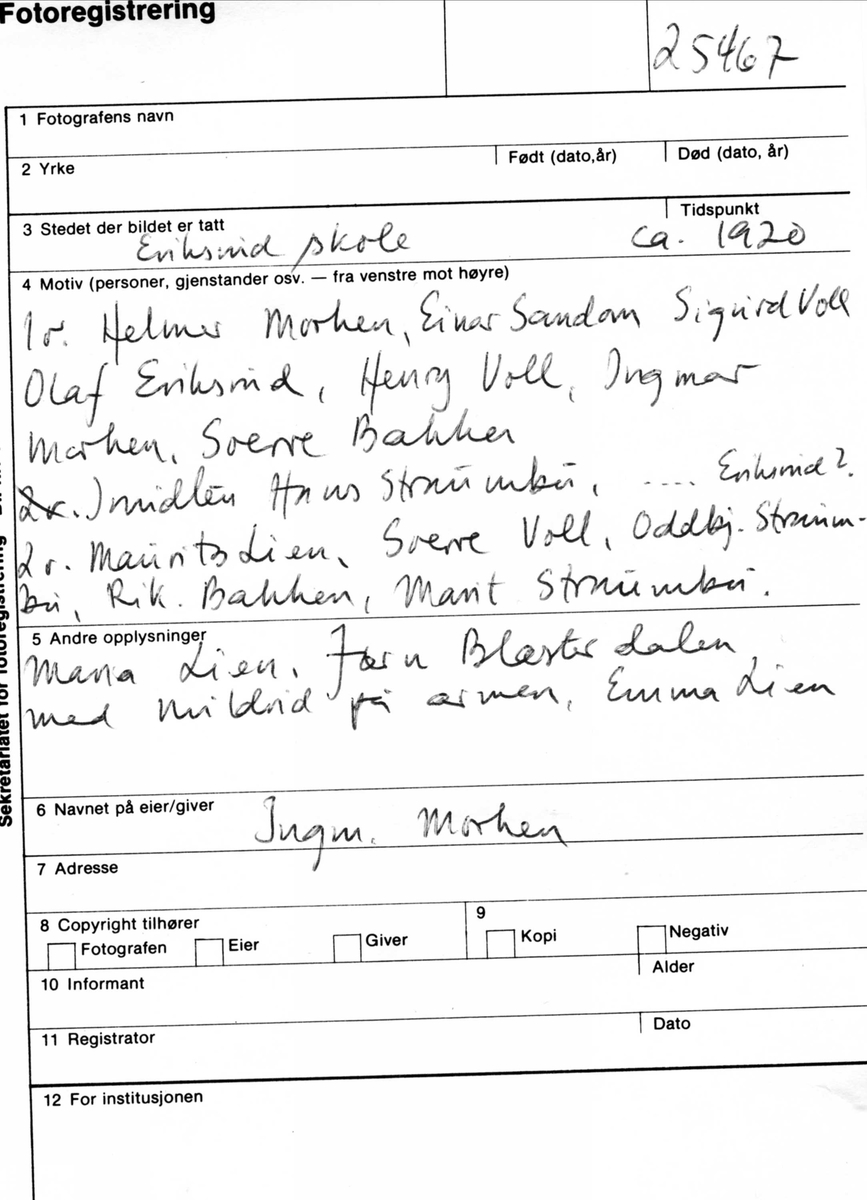 Fotoregistrering
25467
1 Fotografens navn
2 Yrke Født (dato,år) Død (dato, år)
3 Stedet der bildet er tatt Tidspunkt
Eriksrud skole ca. 1920
4 Motiv (personer, gjenstander osv. — fra venstre mot høyre)
1 r. Helmer Morken, Einar Sandom Sigurd Voll
Olaf Eriksrud, Henry Voll, Ingmar
Morken, Sverre Bakken
2 r. I midten Hans Straumbu, .... Eriksrud?
2 r. Maurits Lien, Sverre Voll, Oddbj. Straum-
bu, Rik. Bakken, Marit Straumbu.
5 Andre opplysninger
Maria Lien, Jørn Blæsterdalen
med Mildrid på armen, Emma Lien
6 Navnet på eier/giver Ingm. Morken
7 Adresse
8 Copyright tilhører 9
Fotografen Eier Giver Kopi Negativ
10 Informant Alder
11 Registrator Dato
12 For institusjonen
Sekretariatet for fotoregistrering